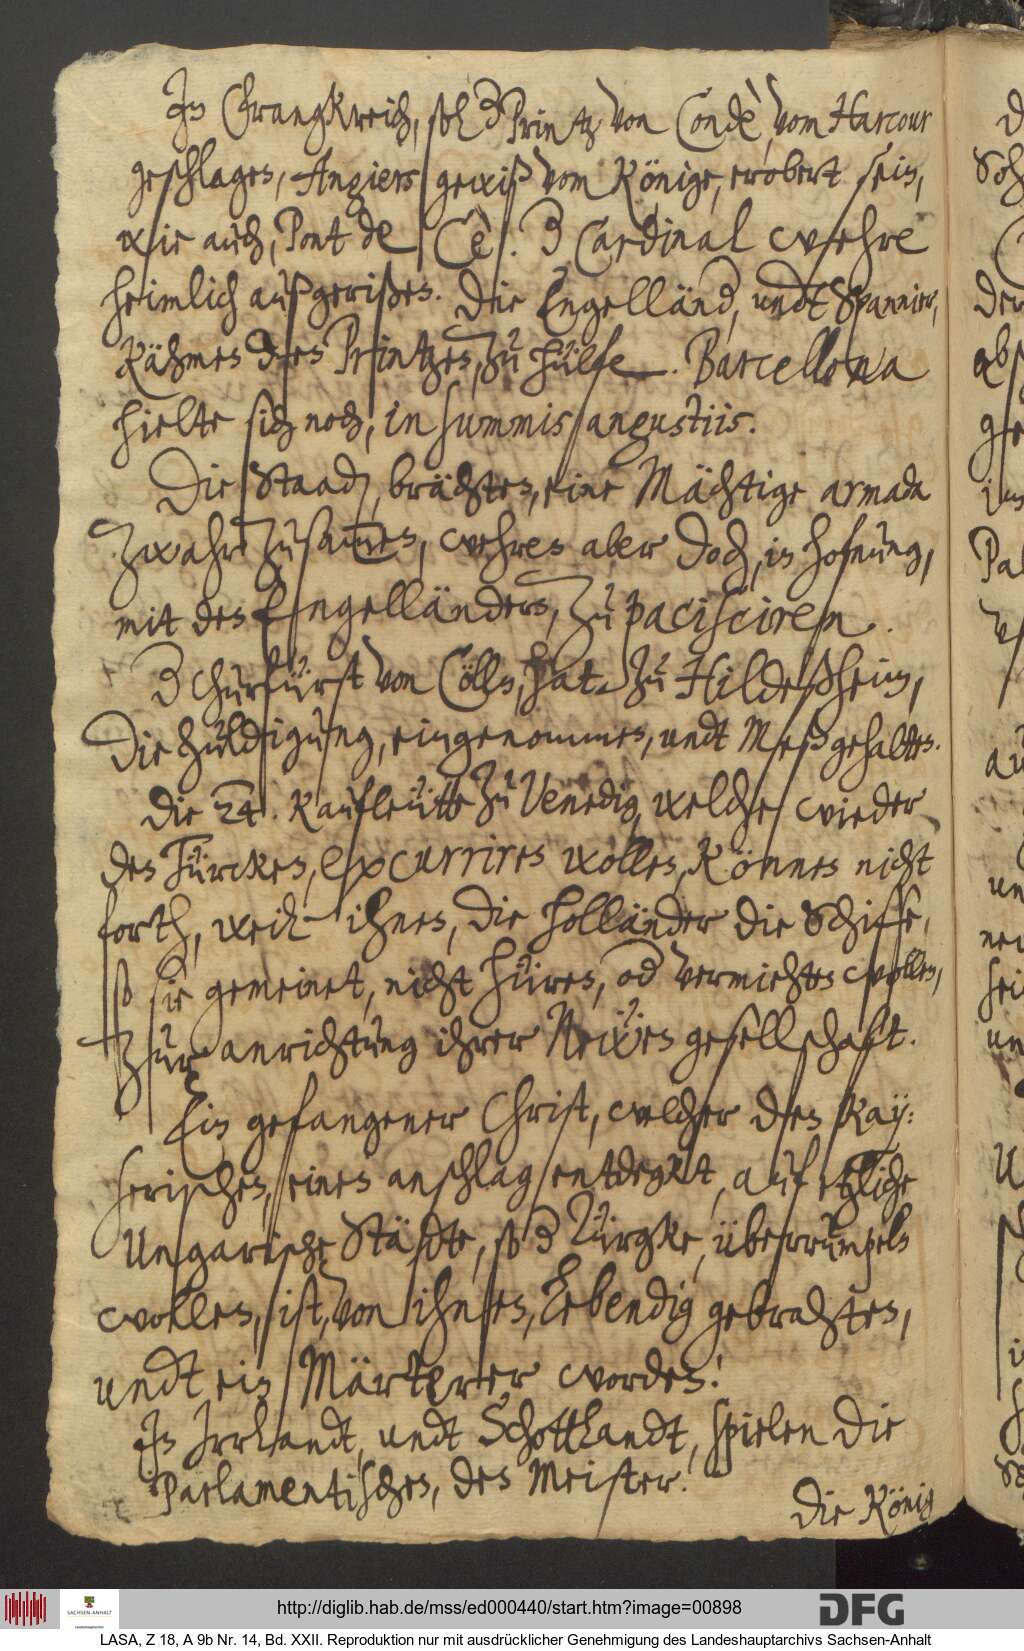 In Frangkreich, sol der Printz von Condè, vom Harcour
geschlagen, Angiers gewiß vom Könige, erobert sein,
wie auch, Pont de Cè. Der Cardinal wehre
heimlich außgerißen. Die Engelländ, undt Spannier,
kähmen dem Printzen, zu hülfe. Barcellona
hielte sich noch, in summis angustiis.
Die Staad, brächten, eine Mächtige armada
zwahr zusamen, wehren aber doch, in hofnung,
mit den Engelländern, zu pacisciren.
Der Churfürst von Cölln, hat zu Hildeßheim,
die huldigung, eingenommen, undt Meß gehalten.
Die 24. Kaufleutte zu Venedig, welche wieder
den Türcken, excurriren wollen, können nicht
forth, weil ihnen, die Holländer die Schiffe,
so sie gemeinet, nicht hüiren, od vermiehten wollen,
zur anrichtung ihrer Neẅen gesellschaft.
Ein gefangener Christ, welcher den Kaÿ:
serischen, einen anschlag entdegkt, auf etzliche
Ungarische Städte, so der Türgke, überrumpeln
wollen, ist, von ihnen, Lebendig gebrahten,
undt ein Märterer worden.
In Irrlandt, undt Schottlandt, spielen die
Parlamentischen, den Meister.
Die König
http://diglib.hab.de/mss/ed000440/start.htm?image=00898
SACHSEN-ANHALT
DFG
LASA, Z 18, A 9b Nr. 14, Bd. XXII. Reproduktion nur mit ausdrücklicher Genehmigung des Landeshauptarchivs Sachsen-Anhalt